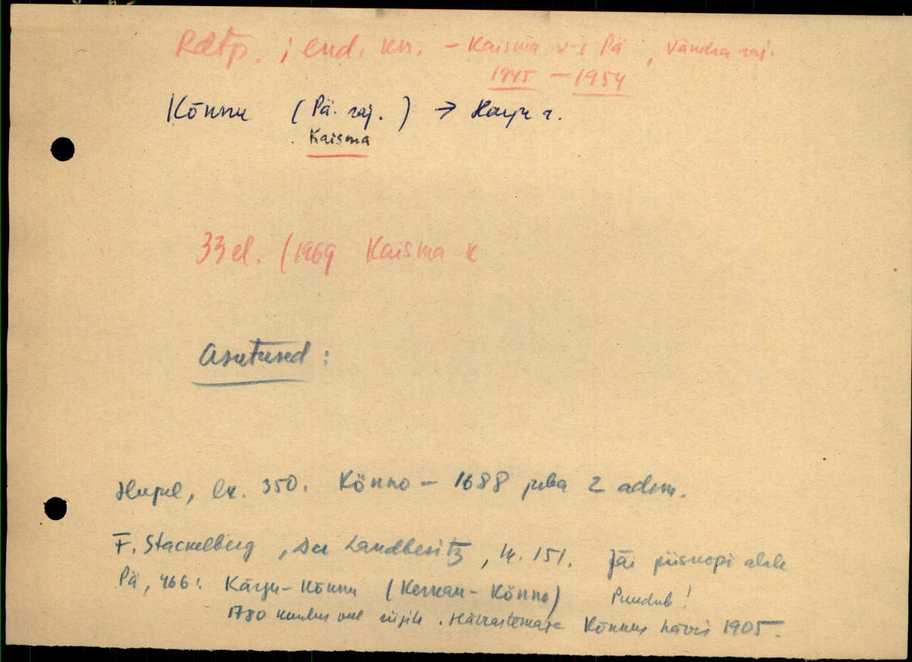 Rdtp. ; end. kn. – Kaisma v-s Pä , Vändra raj.
1945 – 1954
Kõnnu (Pä. raj.) → Harju r.
Kaisma
33 el. (1969 Kaisma k
Asutused :
Hupel, lk. 350. Könno – 1688 juba 2 adm.
F. Stackelberg , Der Landbesitz , lk. 151. Jäi piiskopi alale
Pä, 466: Kärju-Könnu (Kerkau-Könno) Puudub !
1780 kuulus veel riigile . Härrastemaja Kõnnus hävis 1905.